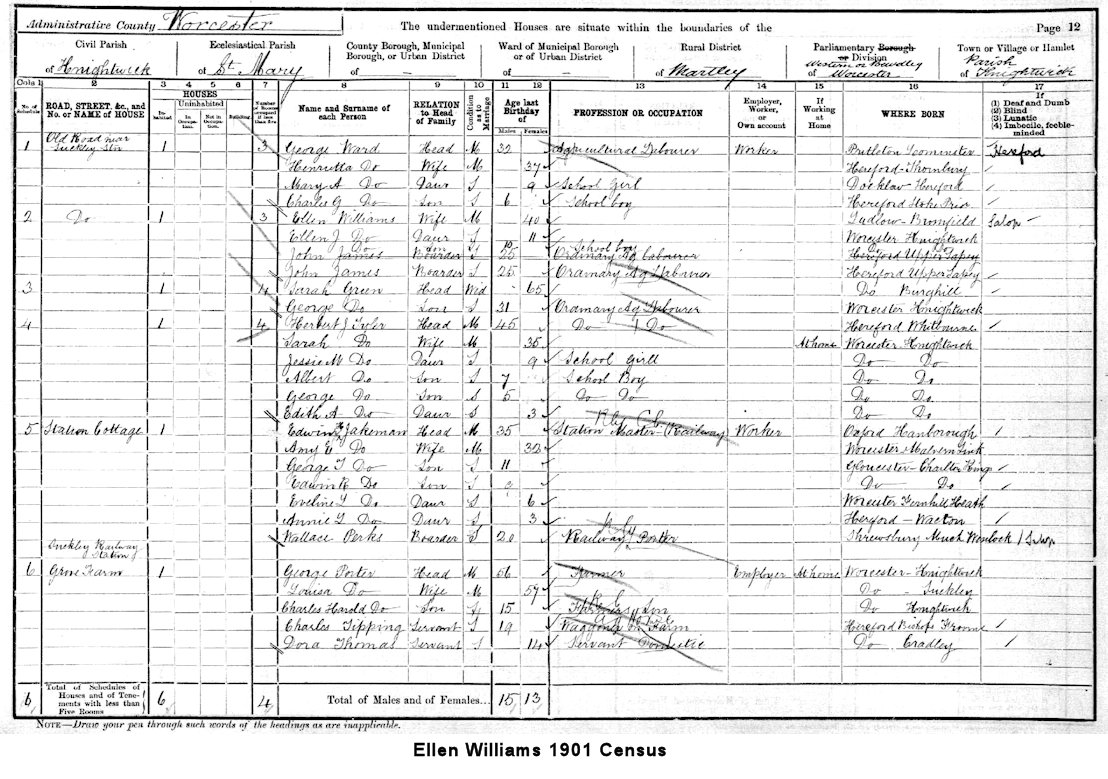 Administrative County Worcester The undermentioned Houses are situate within the boundaries of the Page 12
Civil Parish Ecclesiastical Parish County Borough, Municipal Borough, or Urban District Ward of Municipal Borough or of Urban District Rural District Parliamentary Borough or Division Town or Village or Hamlet
of Knightwick of St Mary of of of Martley of Worcester of Parish Knightwick
Cols 1 2 3 4 5 6 7 8 9 10 11 12 13 14 15 16 17
No. of Schedule ROAD, STREET, &c., and No. or NAME of HOUSE HOUSES Inhabited Uninhabited In Occupation Not in Occupation Building Number of Rooms occupied if less than five Name and Surname of each Person RELATION to Head of Family Condition as to Marriage Age last Birthday of Males Females PROFESSION OR OCCUPATION Employer, Worker, or Own account If Working at Home WHERE BORN If (1) Deaf and Dumb (2) Blind (3) Lunatic (4) Imbecile, feeble-minded
1 Old Road near Suckley Stn 1 3 George Ward Head M 32 Agricultural Labourer Worker Leominster Hereford
Henrietta Do Wife M 37 Hereford-Thornbury
Mary A Do Daur S 9 School Girl Docklow-Hereford
Charles G Do Son S 6 School boy Hereford Stoke Prior
2 Do 1 3 Ellen Williams Wife M 40 Ludlow-Bromfield Salop
Ellen J Do Daur S 11 Worcester Knightwick
John James Boarder S 25 School boy Ordinary Ag Labourer Hereford Upper Sapey
John James Boarder S 25 Ordinary Ag Labourer Hereford Upper Sapey
3 1 4 Sarah Green Head Wid 65 Do Burghill
George Do Son S 31 Ordinary Ag Labourer Worcester Knightwick
4 1 4 Herbert J Tyler Head M 45 Do Do Hereford Whitbourne
Sarah Do Wife M 35 At home Worcester Knightwick
Jessie M Do Daur S 9 School Girll Do Do
Albert Do Son S 7 School Boy Do Do
George Do Son S 5 Do Do Do Do
Edith A Do Daur S 3 Do Do
5 Station Cottage 1 Edwin Jakeman Head M 35 Station Master-Railway Worker Oxford Hanborough
Amy E Do Wife M 32 Worcester Malvern Link
George T Do Son S 11 Gloucester-Charlton Kings
Edwin R Do Son S 9 Do Do
Eveline L Do Daur S 6 Worcester Fernhill Heath
Annie L Do Daur S 3 Hereford - Wacton
Suckley Railway Station Wallace Perks Boarder S 20 Railway Porter Shrewsbury Much Wenlock Salop
6 Grove Farm 1 George Porter Head M 56 Farmer Employer At home Worcester-Knightwick
Louisa Do Wife M 59 Do - Suckley
Charles Harold Do Son S 15 Farmers Son Do Knightwick
Charles Tipping Servant S 19 Waggoner on Farm Hereford Bishops Froome
Dora Thomas Servant S 14 Servant Domestic Do Cradley
6 Total of Schedules of Houses and of Tenements with less than Five Rooms 6 4 Total of Males and of Females... 15 13
NOTE—Draw your pen through such words of the headings as are inapplicable.
Ellen Williams 1901 Census